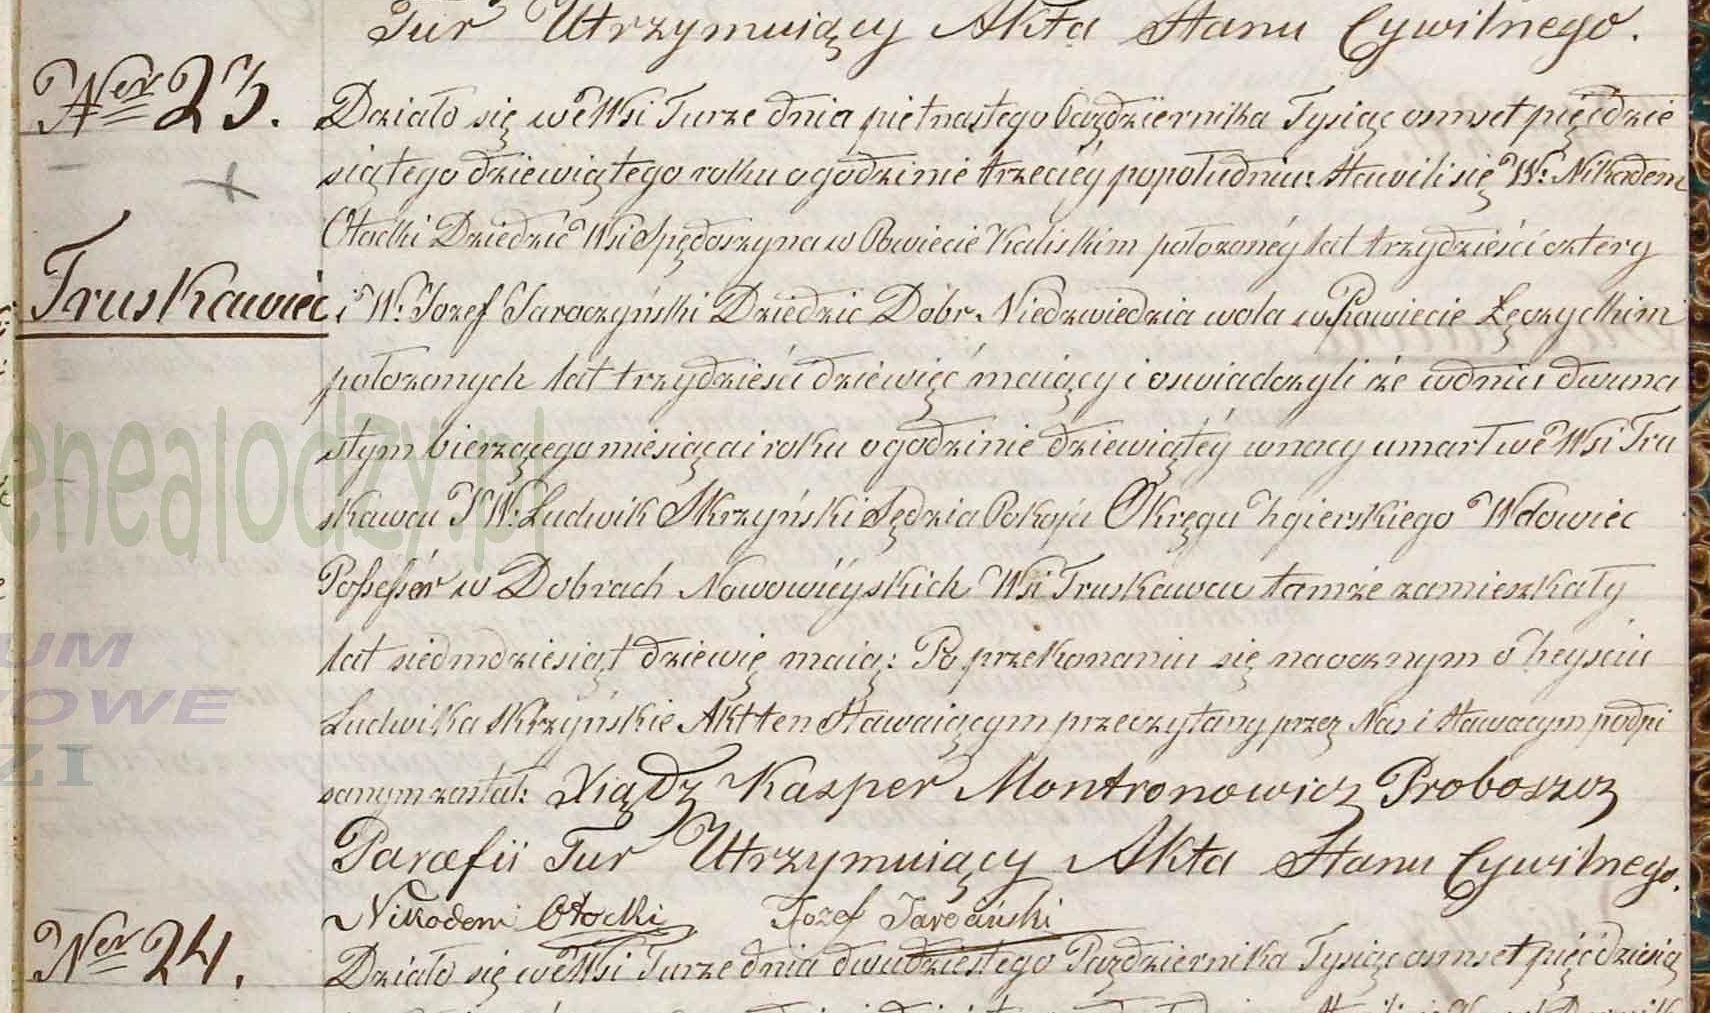 Tur Utrzymuiący Akta Stanu Cywilnego.
Ner 23.
Działo się we Wsi Turze dnia pietnastego Października Tysiąc osmset pięcdzie
siątego dziewiątego roku o godzinie trzeciéy popołudniu: Stawili się W: Nikodem
Otocki Dziedzic Wsi Spędoszyna w Powiecie Kaliskim położonéy lat trzydzieści cztery
Truskawiec
i W: Jozef Jaroczyński Dziedzic Dobr Niedzwiedzia wola w Powiecie Łęczyckim
położonych lat trzydzieści dziewięć maiący i oswiadczyli że w dniu dwuna
stym bierzącego miesiąca i roku o godzinie dziewiątéy w nocy umarł we Wsi Tru
skawcu J W: Ludwik Skrzyński Sędzia Pokoju Okręgu Zgierskiego Wdowiec
Possessór w Dobrach Nowowiéyskich Wsi Truskawcu tamże zamieszkały
lat siedmdziesiąt dziewię maią: Po przekonaniu się naocznym o Zeyściu
Ludwika Skrzyńskie Akt ten Stawaiącym przeczytany przez Nas i Stawacym podpi
sanym został: Xiądz Kasper Montronowicz Proboszcz
Parafii Tur Utrzymuiący Akta Stanu Cywilnego.
Nikodem Otocki Jozef
Ner 24.
Działo się we Wsi Turze dnia dwudziestego Października Tysiąc osmset pięćdziesią
enealodzy.pl
UM
OWE
ZI